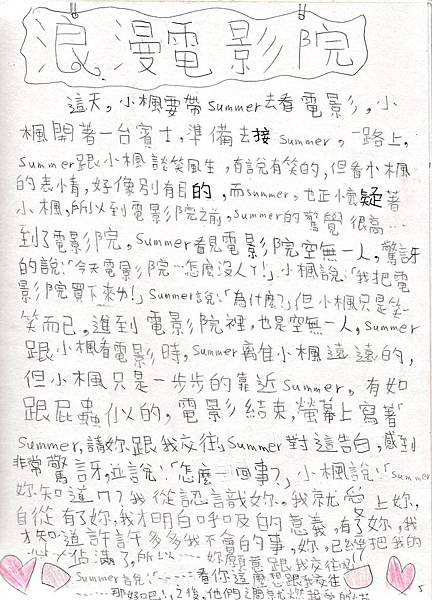 浪漫電影院
這天,小楓要帶summer去看電影,小
楓開著一台賓士,準備去接summer,一路上,
summer跟小楓談笑風生,有說有笑的,但看小楓
的表情,好像別有目的,而summer,也正懷疑著
小楓,所以到電影院之前,summer的驚覺很高…
到了電影院,Summer看見電影院空無一人,驚訝
的說:「今天電影院…怎麼沒人ㄚ!」小楓說:「我把電
影院買下來ㄌ!」Summer說:「為什麼?」但小楓只是笑一
笑而已,進到電影院裡,也是空無一人,summer
跟小楓看電影時,summer離隹小楓遠遠的,
但小楓只是一步步的靠近summer,有如
跟屁蟲似的,電影結束,螢幕上寫著「
Summer,請妳跟我交往」Summer對這告白,感到
非常驚訝,並說:「怎麼一回事?」小楓說:「Summer
妳知道ㄇ?我從認識妳,我就愛上妳,
自從有了妳,我才明白呼及的意義,有了妳,我
才知道許許多多我不會的事,妳,已經把我的
心ㄉ佔滿了,所以……妳願意跟我交往嗎
Summer說:「……看你這麼想跟我交往
……那好吧!」之後,他們之間就燃起愛的
5